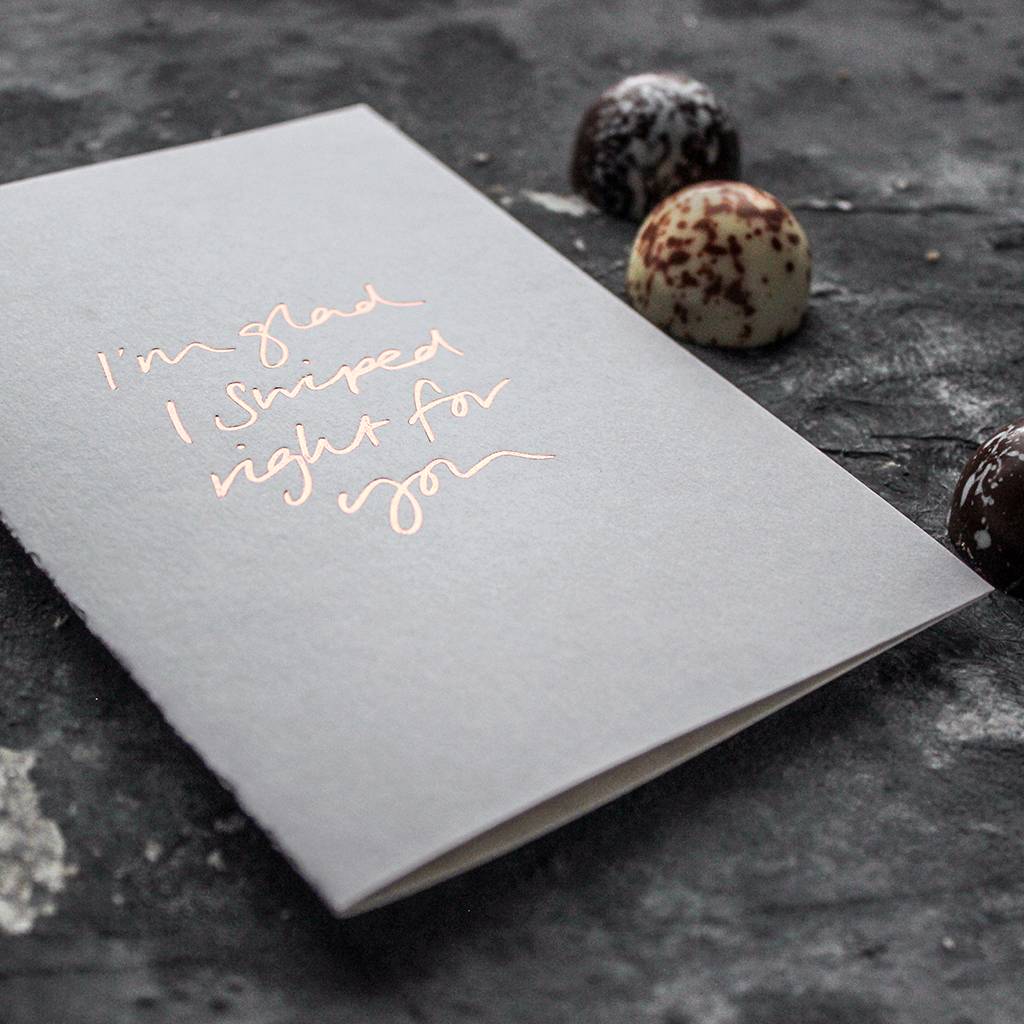 I'm glad
I swiped
right for
you